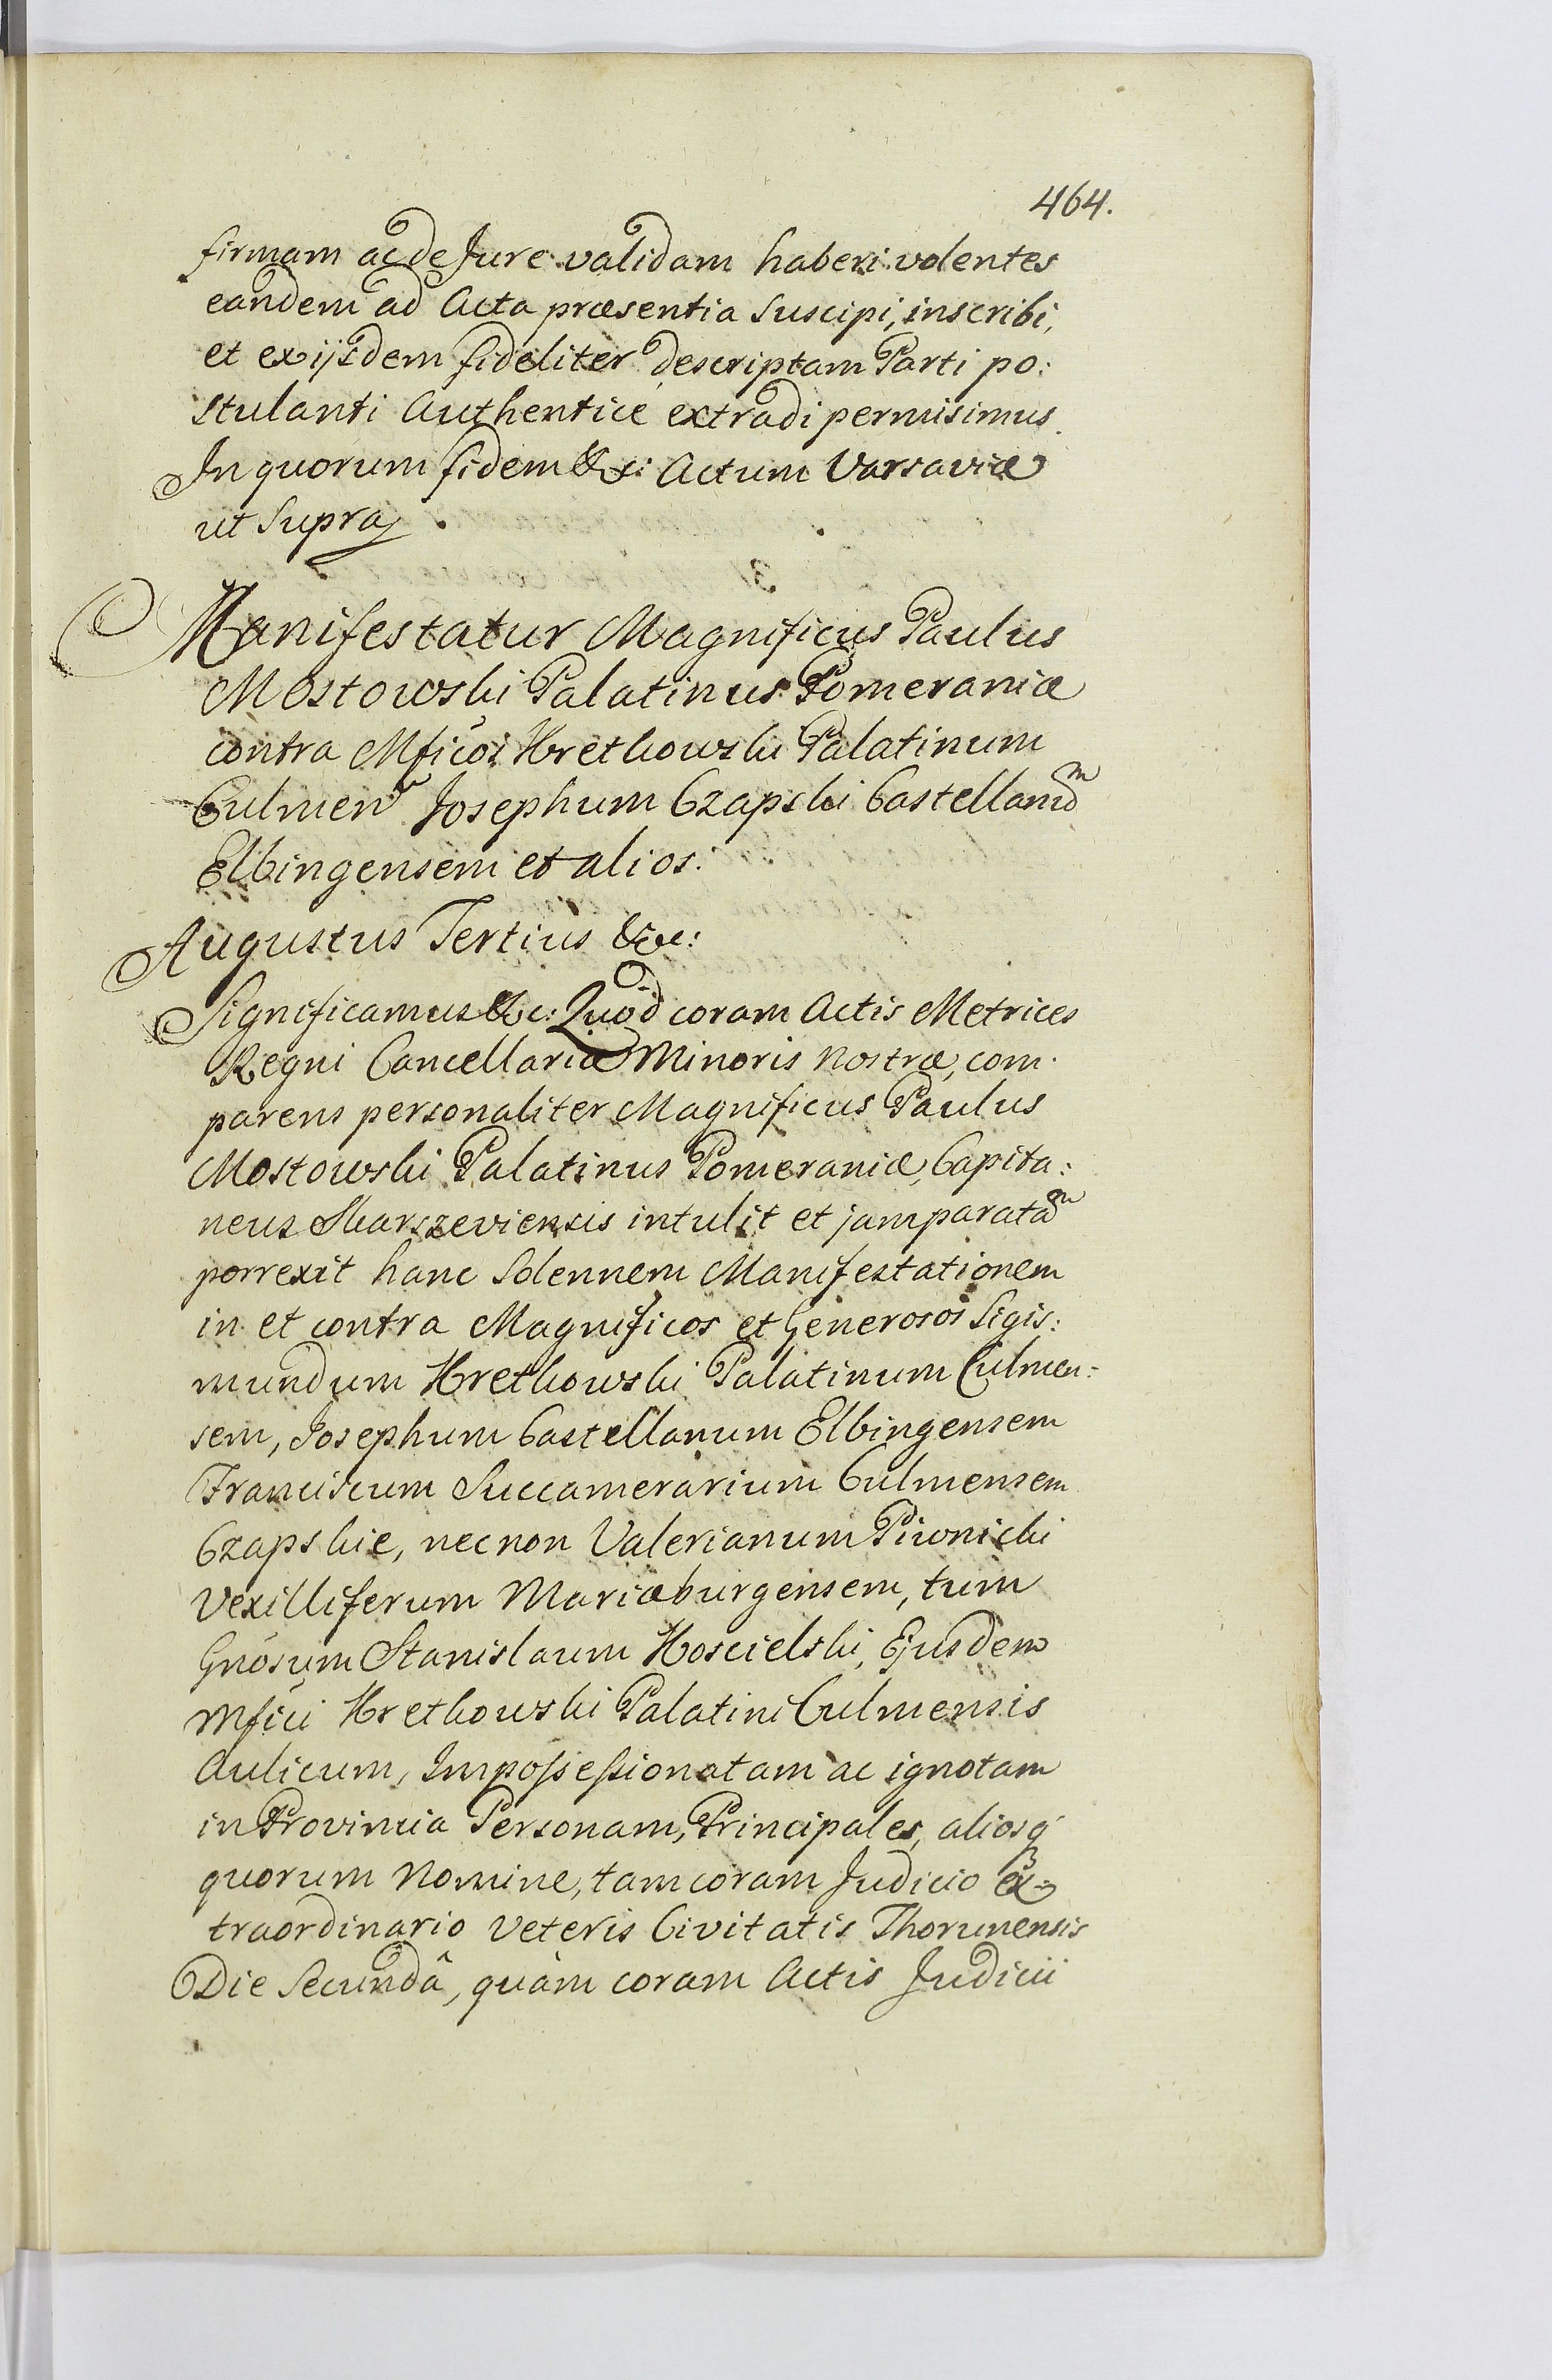 464.
firmam ac de Jure validam haberi volentes
eandem ad Acta præsentia suscipi, inscribi,
et ex ijsdem fideliter descriptam Parti po:
stulanti Authentice extradi permisimus.
In quorum fidem &c: Actum Varsaviæ
ut supra.
Manifestatur Magnificus Paulus
Mostowski Palatinus Pomeraniæ
contra Mficos Kretkowski Palatinum
Culmen Josephum Czapski Castellanum
Elbingensem et alios.
Augustus Tertius &c:
Significamus &c: Quod coram Actis Metrices
Regni Cancellariæ Minoris Nostræ, com:
parens personaliter Magnificus Paulus
Mostowski Palatinus Pomeraniæ, Capita:
neus Skarszeviensis intulit et jam paratam
porrexit hanc Solennem Manifestationem
in et contra Magnificos et Generosos Sigis:
mundum Kretkowski Palatinum Culmen:
sem, Josephum Castellanum Elbingensem
Franciscum Succamerarium Culmensem
Czapskie, necnon Valerianum Piwnicki
Vexilliferum Mariæburgensem, tum
Gnosum Stanislaum Koscielski, Ejusdem
Mfici Kretkowski Palatini Culmensis
Aulicum, Impossessionatam ac ignotam
in Provincia Personam, Principales, aliosq
quorum Nomine, tam coram Judicio ex=
traordinario Veteris Civitatis Thorunensis
Die Secundâ, quàm coram Actis Judicii